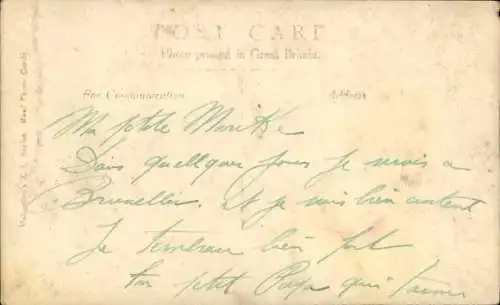 POST CARD
Photo printed in Great Britain.
For Communication
Address
Ma ptite
Dans quelques jours je serais a
Bruxelles. et je suis bien content
Je bien fort
Ton ptit Papa qui t'aime